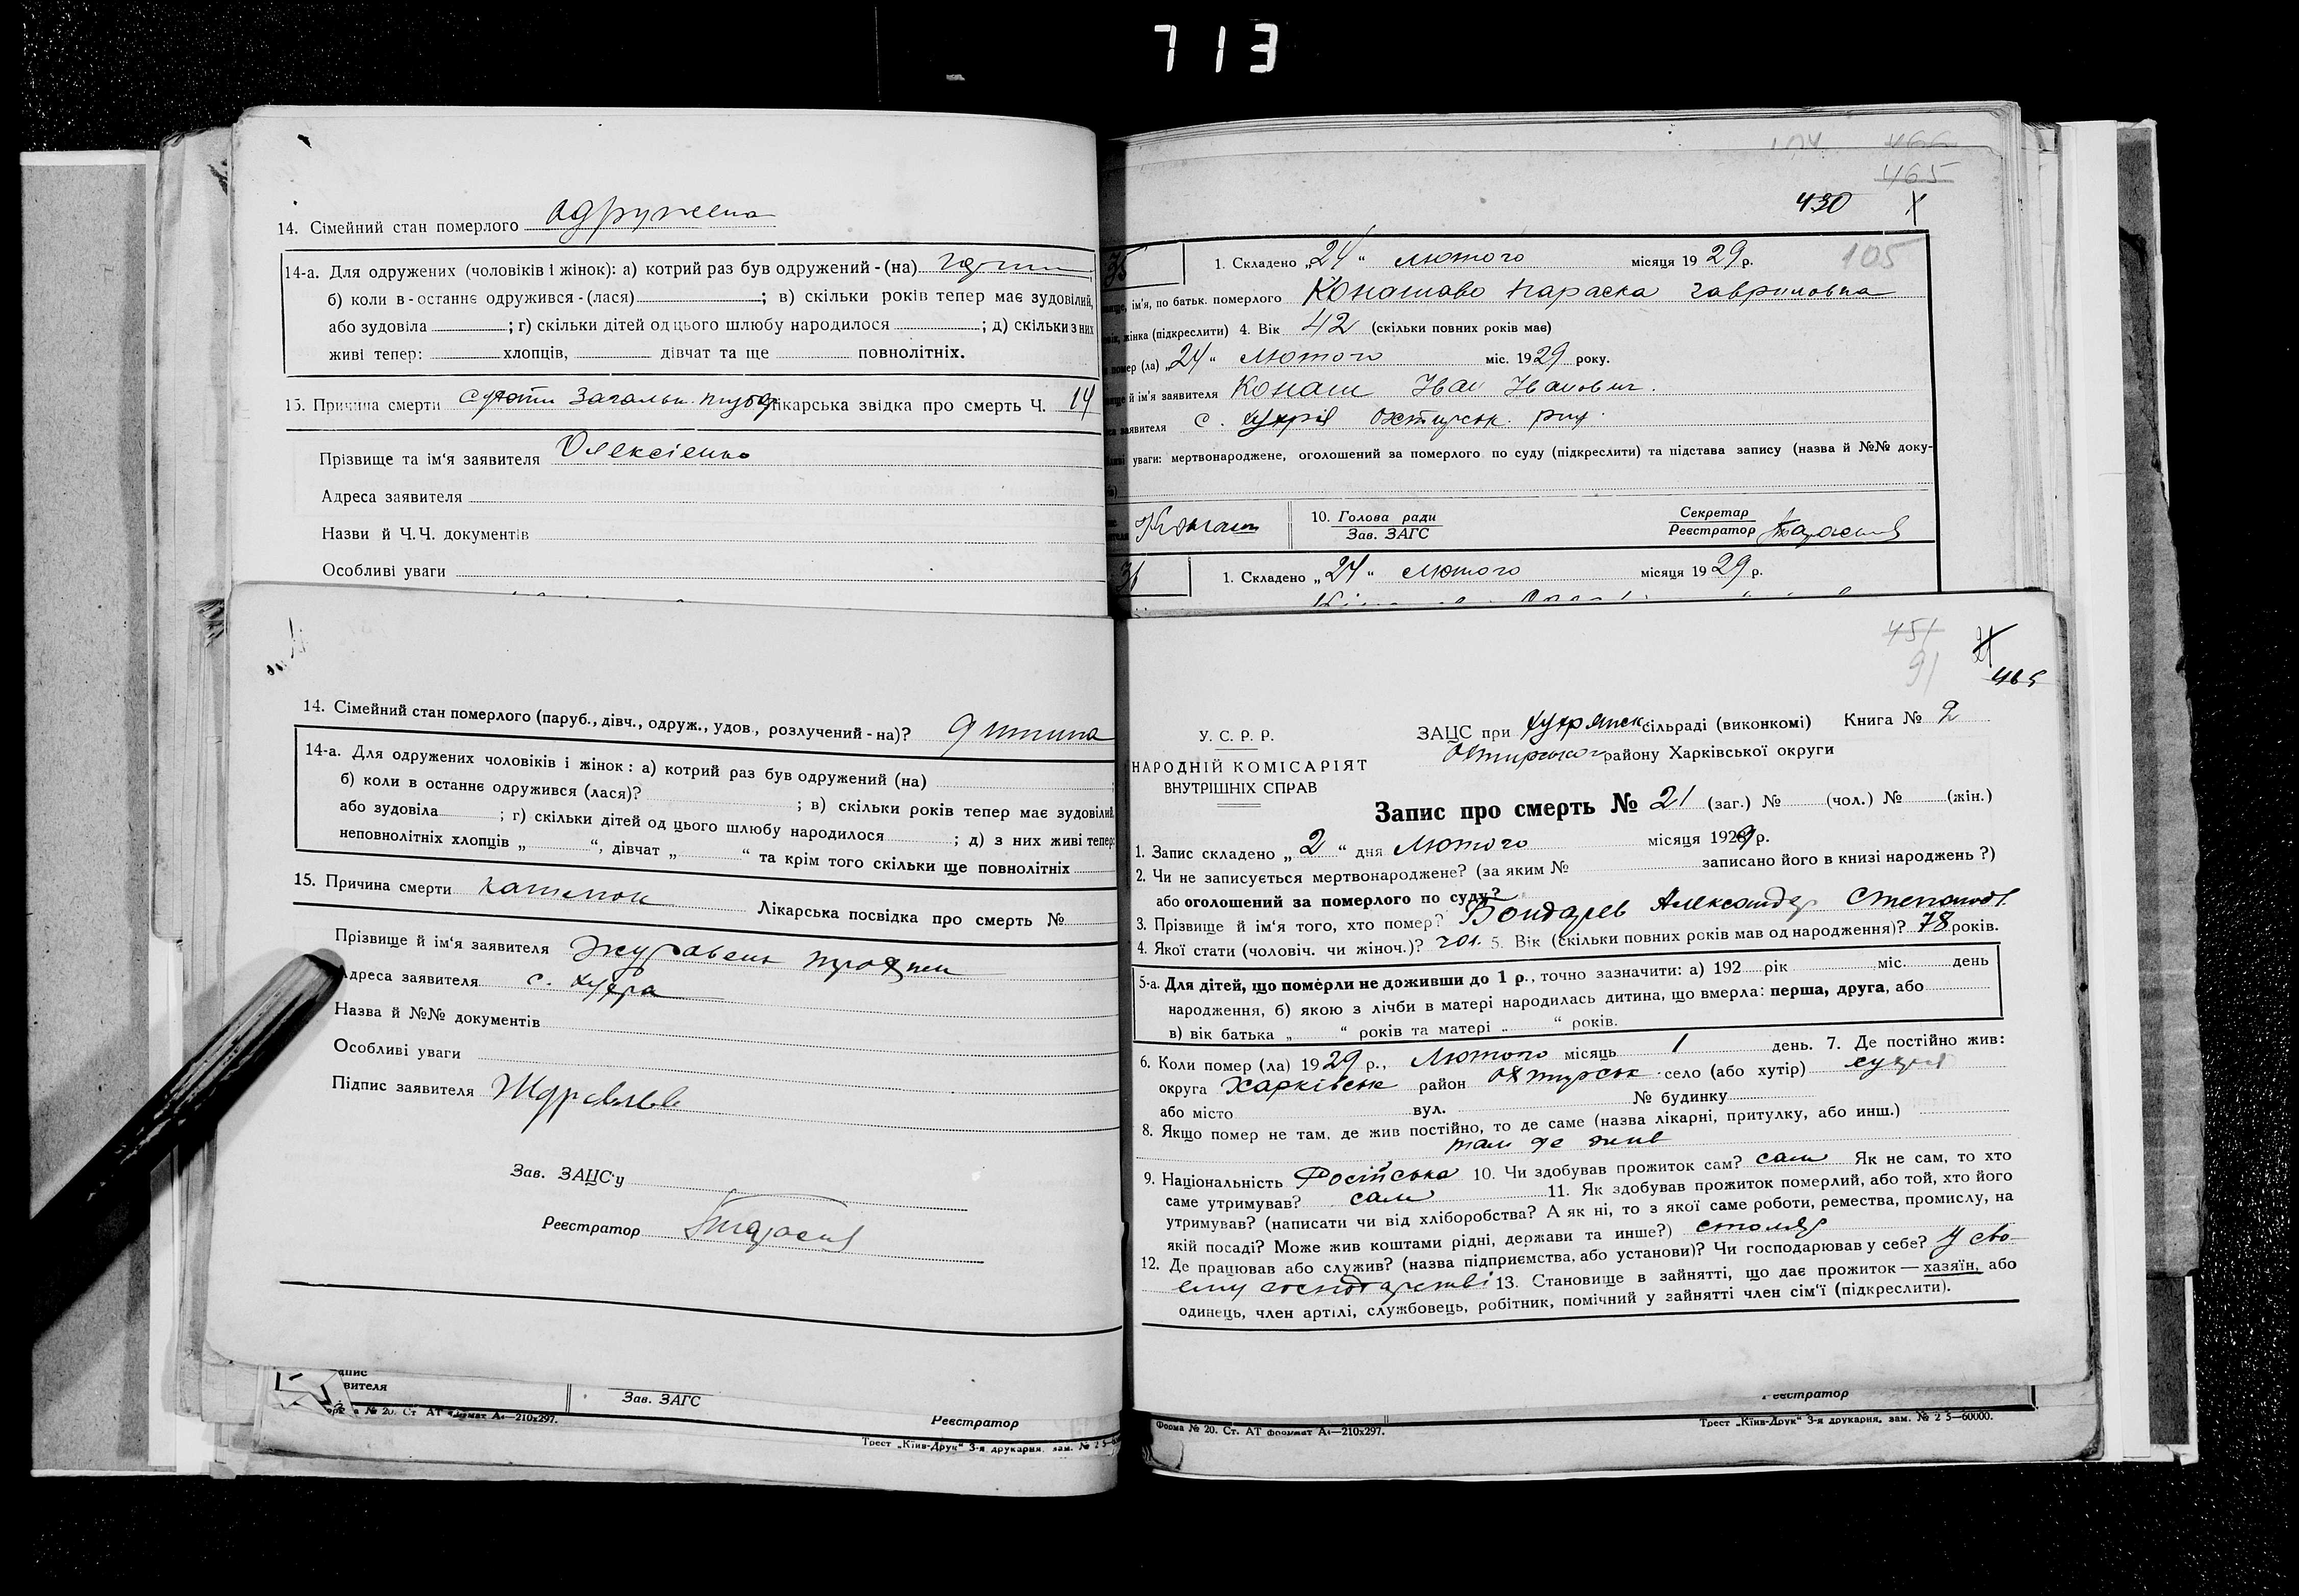 713
14. Сімейний стан померлого одружена
14-а. Для одружених (чоловіків і жінок): а) котрий раз був одружений - (на)
б) коли в - останнє одружився - (лася) ; в) скільки років тепер має зудовілий,
або зудовіла ; г) скільки дітей од цього шлюбу народилося ; д) скільки з них
живі тепер: хлопців, дівчат та ще повнолітніх.
15. Причина смерти Лікарська звідка про смерть Ч. 14
Прізвище та ім'я заявителя Олексієнко
Адреса заявителя
Назви й Ч.Ч. документів
Особливі уваги
14. Сімейний стан померлого (паруб., дівч., одруж., удов., розлучений - на)? дитина
14-а. Для одружених чоловіків і жінок: а) котрий раз був одружений (на)
б) коли в останнє одружився (лася)? ; в) скільки років тепер має зудовілий,
або зудовіла ; г) скільки дітей од цього шлюбу народилося ; д) з них живі тепер:
неповнолітніх хлопців „ “, дівчат „ “ та крім того скільки ще повнолітніх
15. Причина смерти Лікарська посвідка про смерть №
Прізвище й ім'я заявителя
Адреса заявителя с. Хухра
Назва й №№ документів
Особливі уваги
Підпис заявителя
Зав. ЗАЦС'у
Реєстратор
Зав. ЗАГС
Реєстратор
№ 20. Ст АТ формат А₄—210х297.
Трест „Київ-Друк“ 3-я друкарня, зам. №
466
465
430
105
1. Складено „24“ лютого місяця 1929 р.
ім'я, по батьк. померлого Конашова Параска Гавриловна
жінка (підкреслити) 4. Вік 42 (скільки повних років має)
помер (ла) „24“ лютого міс. 1929 року.
й ім'я заявителя Конаш Іван Іванович.
заявителя с. Хухря
уваги: мертвонароджене, оголошений за померлого по суду (підкреслити) та підстава запису (назва й №№ доку-
Конаш 10. Голова ради
Зав. ЗАГС
Секретар
Реєстратор
1. Складено „24“ лютого місяця 1929 р.
451
91
465
У. С. Р. Р.
НАРОДНІЙ КОМІСАРІЯТ
ВНУТРІШНІХ СПРАВ
ЗАЦС при Хухрянск. сільраді (виконкомі) Книга № 2
району Харківської округи
Запис про смерть № 21 (заг.) № (чол.) № (жін.)
1. Запис складено „2“ дня лютого місяця 1929 р.
2. Чи не записується мертвонароджене? (за яким № записано його в книзі народжень?)
або оголошений за померлого по суду?
3. Прізвище й ім'я того, хто помер? Бондарев Александер Степанов.
4. Якої стати (чоловіч. чи жіноч.)? чол. 5. Вік (скільки повних років мав од народження)? 78 років.
5-а. Для дітей, що померли не доживши до 1 р., точно зазначити: а) 192 рік міс. день
народження, б) якою з лічби в матері народилась дитина, що вмерла: перша, друга, або
в) вік батька „ “ років та матері „ “ років.
6. Коли помер (ла) 1929 р., Лютого місяць 1 день. 7. Де постійно жив:
округа Харківськ район Охтирськ. село (або хутір) Хухря
або місто вул. № будинку
8. Якщо помер не там, де жив постійно, то де саме (назва лікарні, притулку, або инш.)
там де жив
9. Національність Російська 10. Чи здобував прожиток сам? сам Як не сам, то хто
саме утримував? сам 11. Як здобував прожиток померлий, або той, хто його
утримував? (написати чи від хліборобства? А як ні, то з якої саме роботи, ремества, промислу, на
якій посаді? Може жив коштами рідні, держави та инше?) столяр
12. Де працював або служив? (назва підприємства, або установи)? Чи господарював у себе? У сво-
єму господарстві 13. Становище в зайнятті, що дає прожиток — хазяїн, або
одинець, член артілі, службовець, робітник, помічний у зайнятті член сім'ї (підкреслити).
Реєстратор
Форма № 20. Ст. АТ формат А₄—210х297.
Трест „Київ-Друк“ 3-я друкарня, зам. № 2 5—60000.